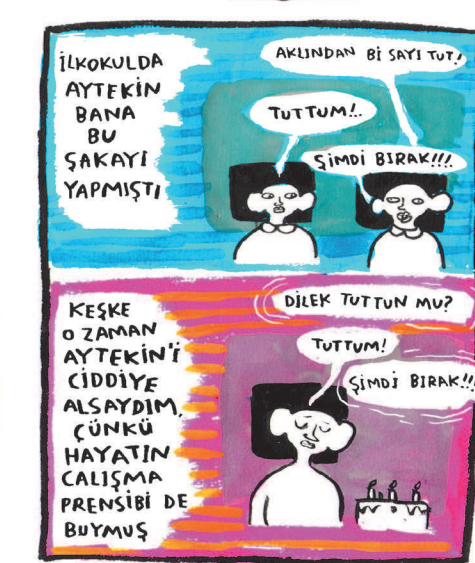 İLKOKULDA
AYTEKİN
BANA
BU
ŞAKAYI
YAPMIŞTI
AKLINDAN Bİ SAYI TUT!
TUTTUM!..
ŞİMDİ BIRAK!!!.
KEŞKE
O ZAMAN
AYTEKİN'İ
CİDDİYE
ALSAYDIM,
ÇÜNKÜ
HAYATIN
CALIŞMA
PRENSİBİ DE
BUYMUŞ
DİLEK TUTTUN MU?
TUTTUM!
ŞİMDİ BIRAK!!!